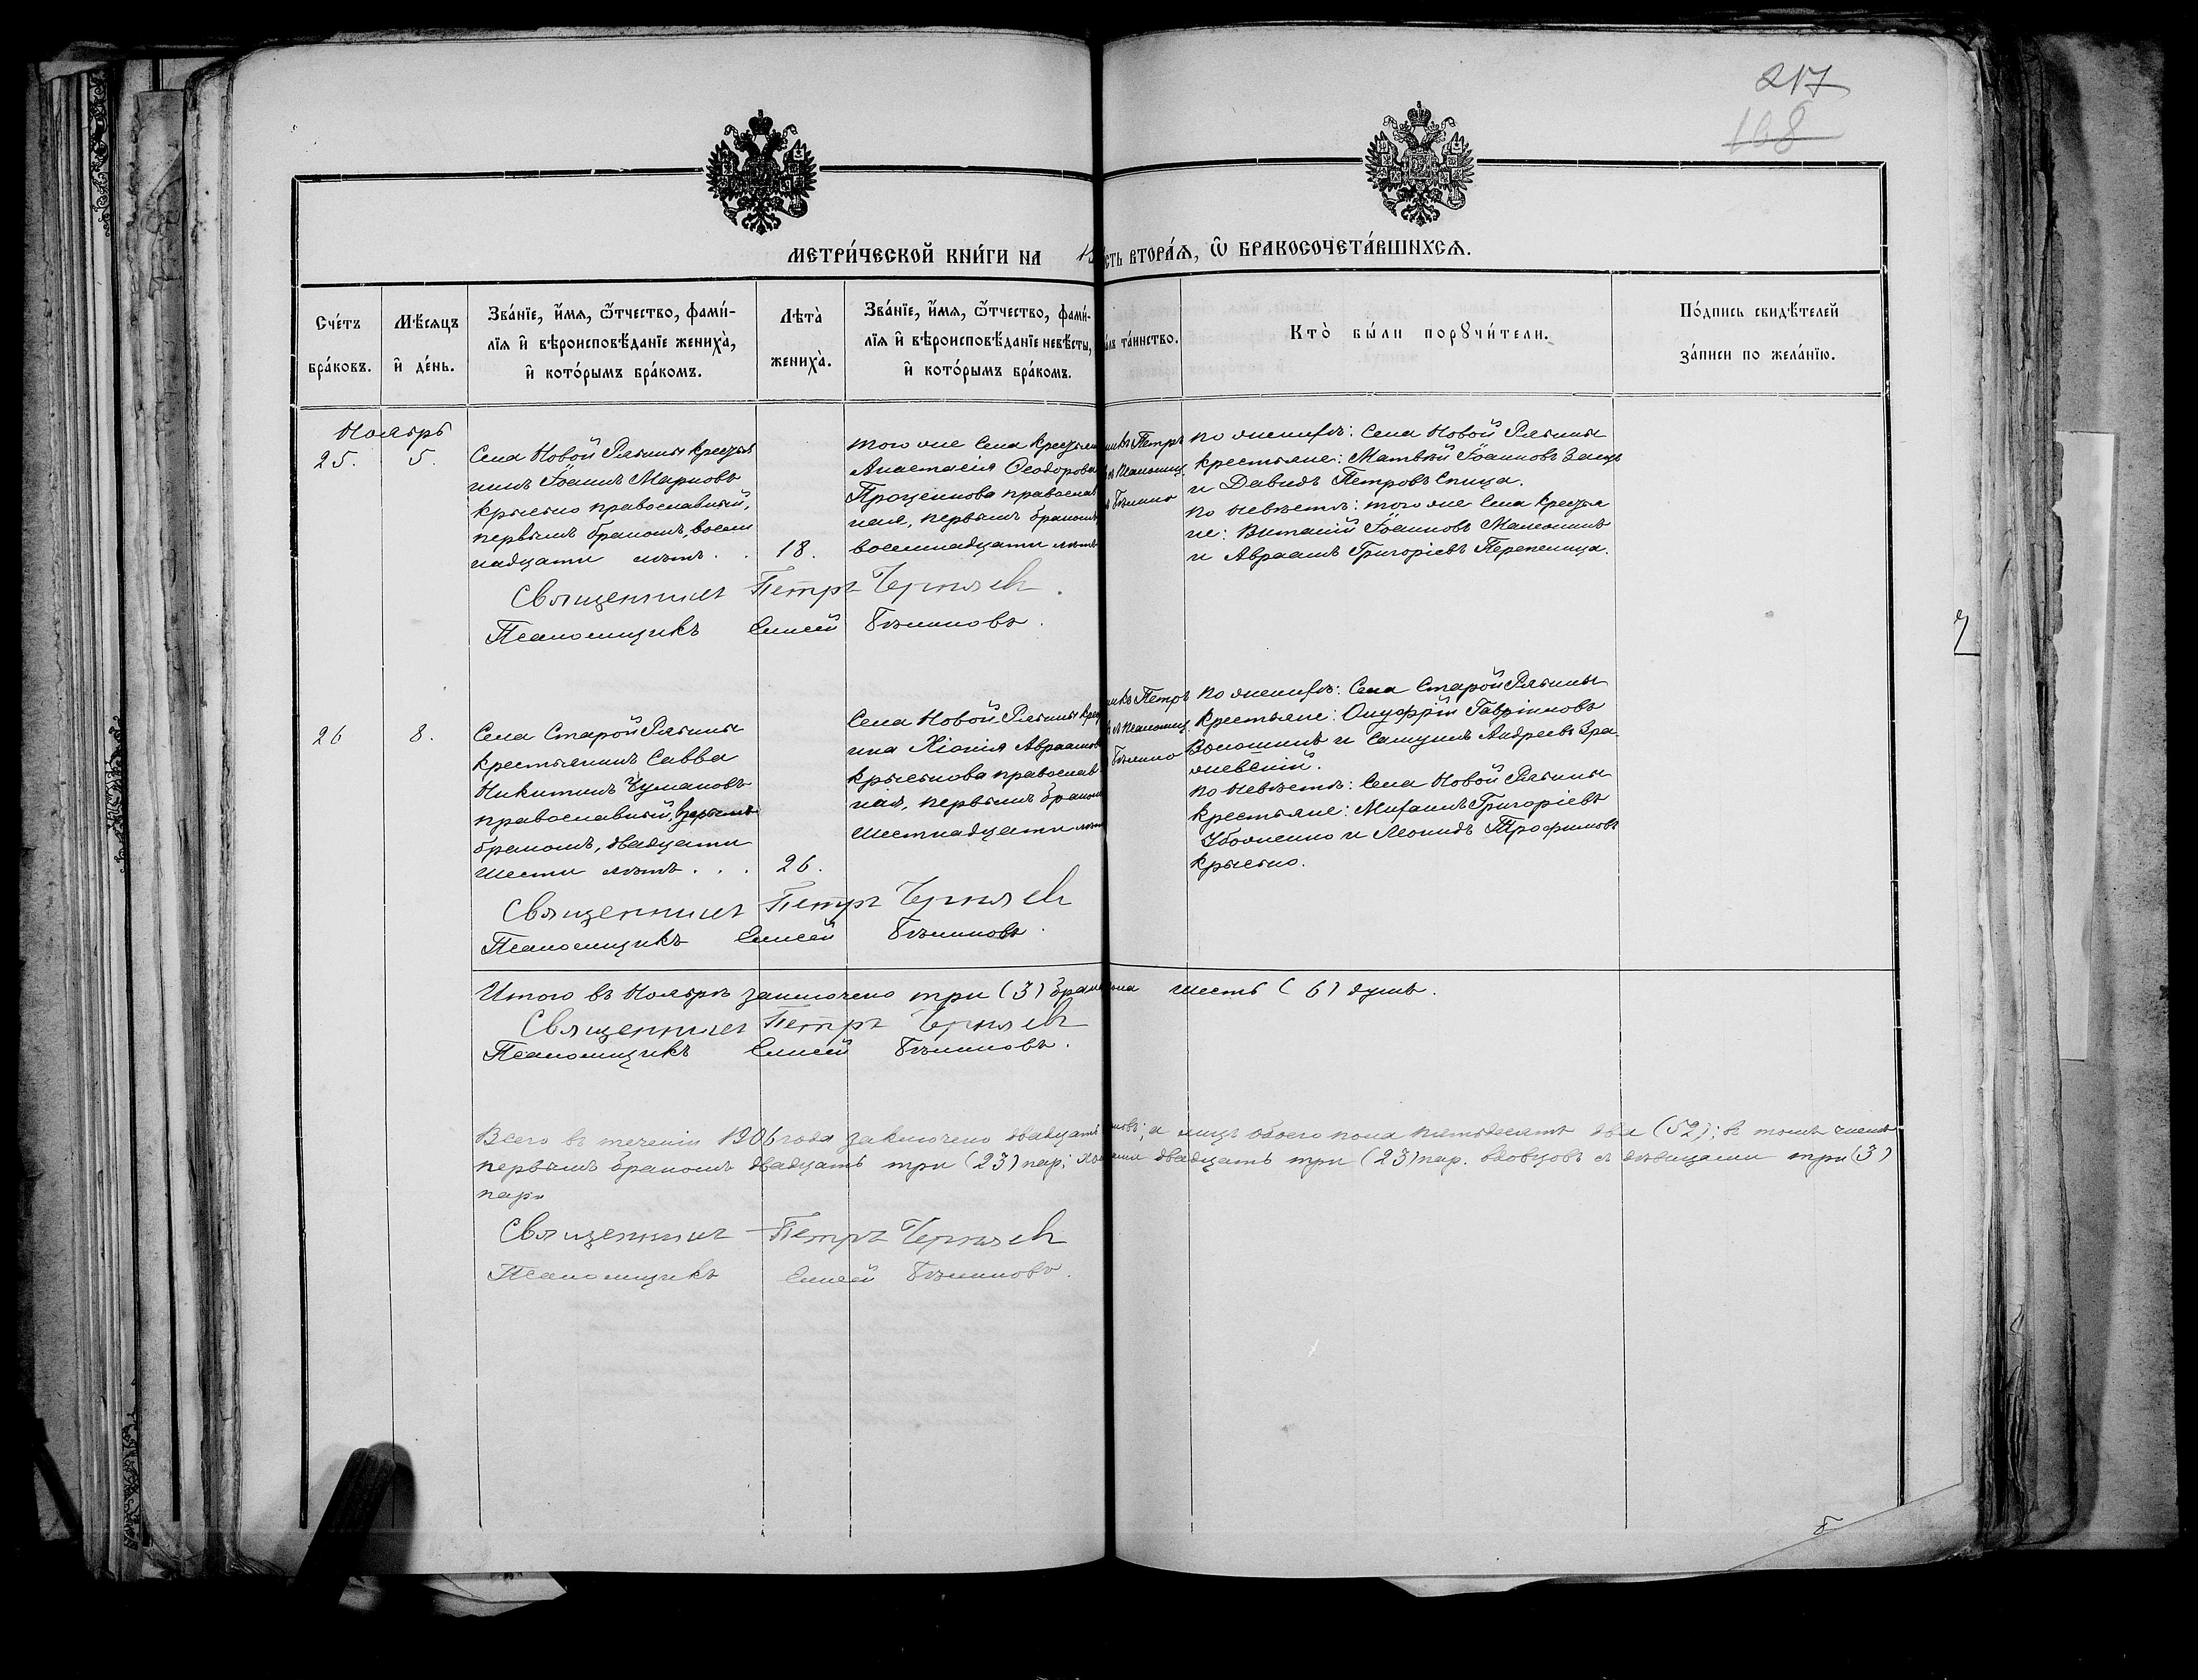 217
108
МЕТРИ́ЧЕСКОЙ КНИ́ГИ НА
СТЬ ВТОРА́Я, Ѿ БРАКОСОЧЕТА́ВШИХСЯ.
Сче́тъ бра́ковъ.
Мѣ́сяцъ и де́нь.
Зва́нїе, и҆́мя, ѻ҆́тчество, фами́-
лїя и҆ вѣроисповѣ́данїе жениха̀,
и҆ кото́рымъ бра́комъ.
Лѣта̀ жениха̀.
Зва́нїе, и҆́мя, ѻ҆́тчество, фами́-
лїя и҆ вѣроисповѣ́данїе невѣ́сты,
и҆ кото́рымъ бра́комъ.
та́инство.
Кто̀ бы́ли порꙋчи́тели.
По́дпись свидѣ́телей
за́писи по жела́нїю.
Ноябрь
25. 5.
Села Новой Рябины крестья
нинъ Іоаннъ Марковъ
Крысько православный,
первымъ бракомъ, восем
надцати лѣтъ . .
18.
того же села крестьян
Анастасія Ѳеодорова
Проценкова православ
ная, первымъ бракомъ,
восемнадцати лѣтъ
никъ Петръ
псаломщ
Бѣлико
По женихѣ: села Новой Рябины
крестьяне: Матвѣй Іоанновъ
и Давидъ Петровъ Спица.
По невѣстѣ: того же села крестья
не: Виталій Іоанновъ
и Авраамъ Григоріевъ Перепелица.
Священникъ Петръ Черняев
Псаломщикъ Елисей Бѣликовъ.
26 8.
Села Старой Рябины
крестьянинъ Савва
Никитинъ Чумаковъ
православный, вторымъ
бракомъ, двадцати
шести лѣтъ . . .
26.
Села Новой Рябины крес
нка Хіонія Авраамов
Крыськова православ
ная, первымъ бракомъ
шестнадцати лѣт
никъ Петръ
псаломщ
Бѣлико
По женихѣ: села Старой Рябины
крестьяне: Онуфрій Гавріиловъ
Волошинъ и Самуилъ Андреевъ Кра-
жевскій.
По невѣстѣ: села Новой Рябины
крестьяне: Михаилъ Григоріевъ
Убоженко и Леонидъ Трофимовъ
Крысько.
Священникъ Петръ Черняев
Псаломщикъ Елисей Бѣликовъ.
Итого въ Ноябрѣ заключено три (3) брака шесть (6) душъ.
Священникъ Петръ Черняев
Псаломщикъ Елисей Бѣликовъ.
Всего въ теченіи 1906 года заключено двадцать ковъ; а лицъ обоего пола пятьдесятъ два (52); въ томъ числѣ
первымъ бракомъ двадцать три (23) пар; двадцать три (23) пар. вдовцовъ съ дѣвицами три (3)
пары
Священникъ Петръ Черняев
Псаломщикъ Елисей Бѣликовъ.